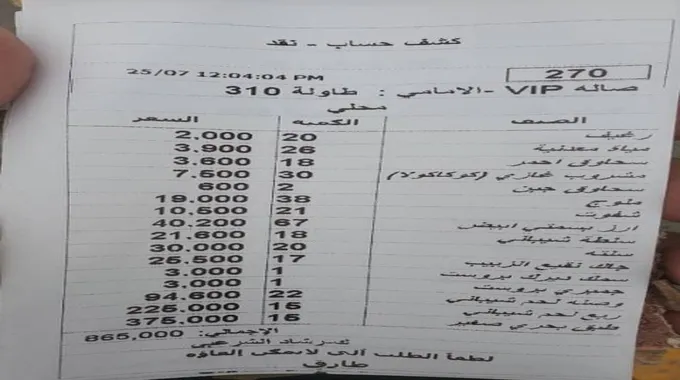 كشف حساب - نقد
270
25/07 12:04:04 PM
صاله VIP -الامامي : طاولة 310
محلي
الصنف الكميه السعر
رغيف 20 2.000
مياة معدنية 26 3.900
سحاوق احمر 18 3.600
مشروب غازي (كوكاكولا) 30 7.500
سحاوق جبن 2 600
ملوج 38 19.000
شفوت 21 10.500
ارز بسمتي ابيض 67 40.200
سلطة شيباني 18 21.600
سلته 20 30.000
جك نقيع الزبيب 17 25.500
سمك فيرك بروست 1 3.000
جمبري بروست 1 3.000
وصله لحم شيباني 22 94.600
ربع لحم شيباني 15 225.000
طبق بحري صغير 15 375.000
الإجمالي: 865,000
الشرعبي
لطمة الطلب آلى لايمكن إلغاؤه
طارق